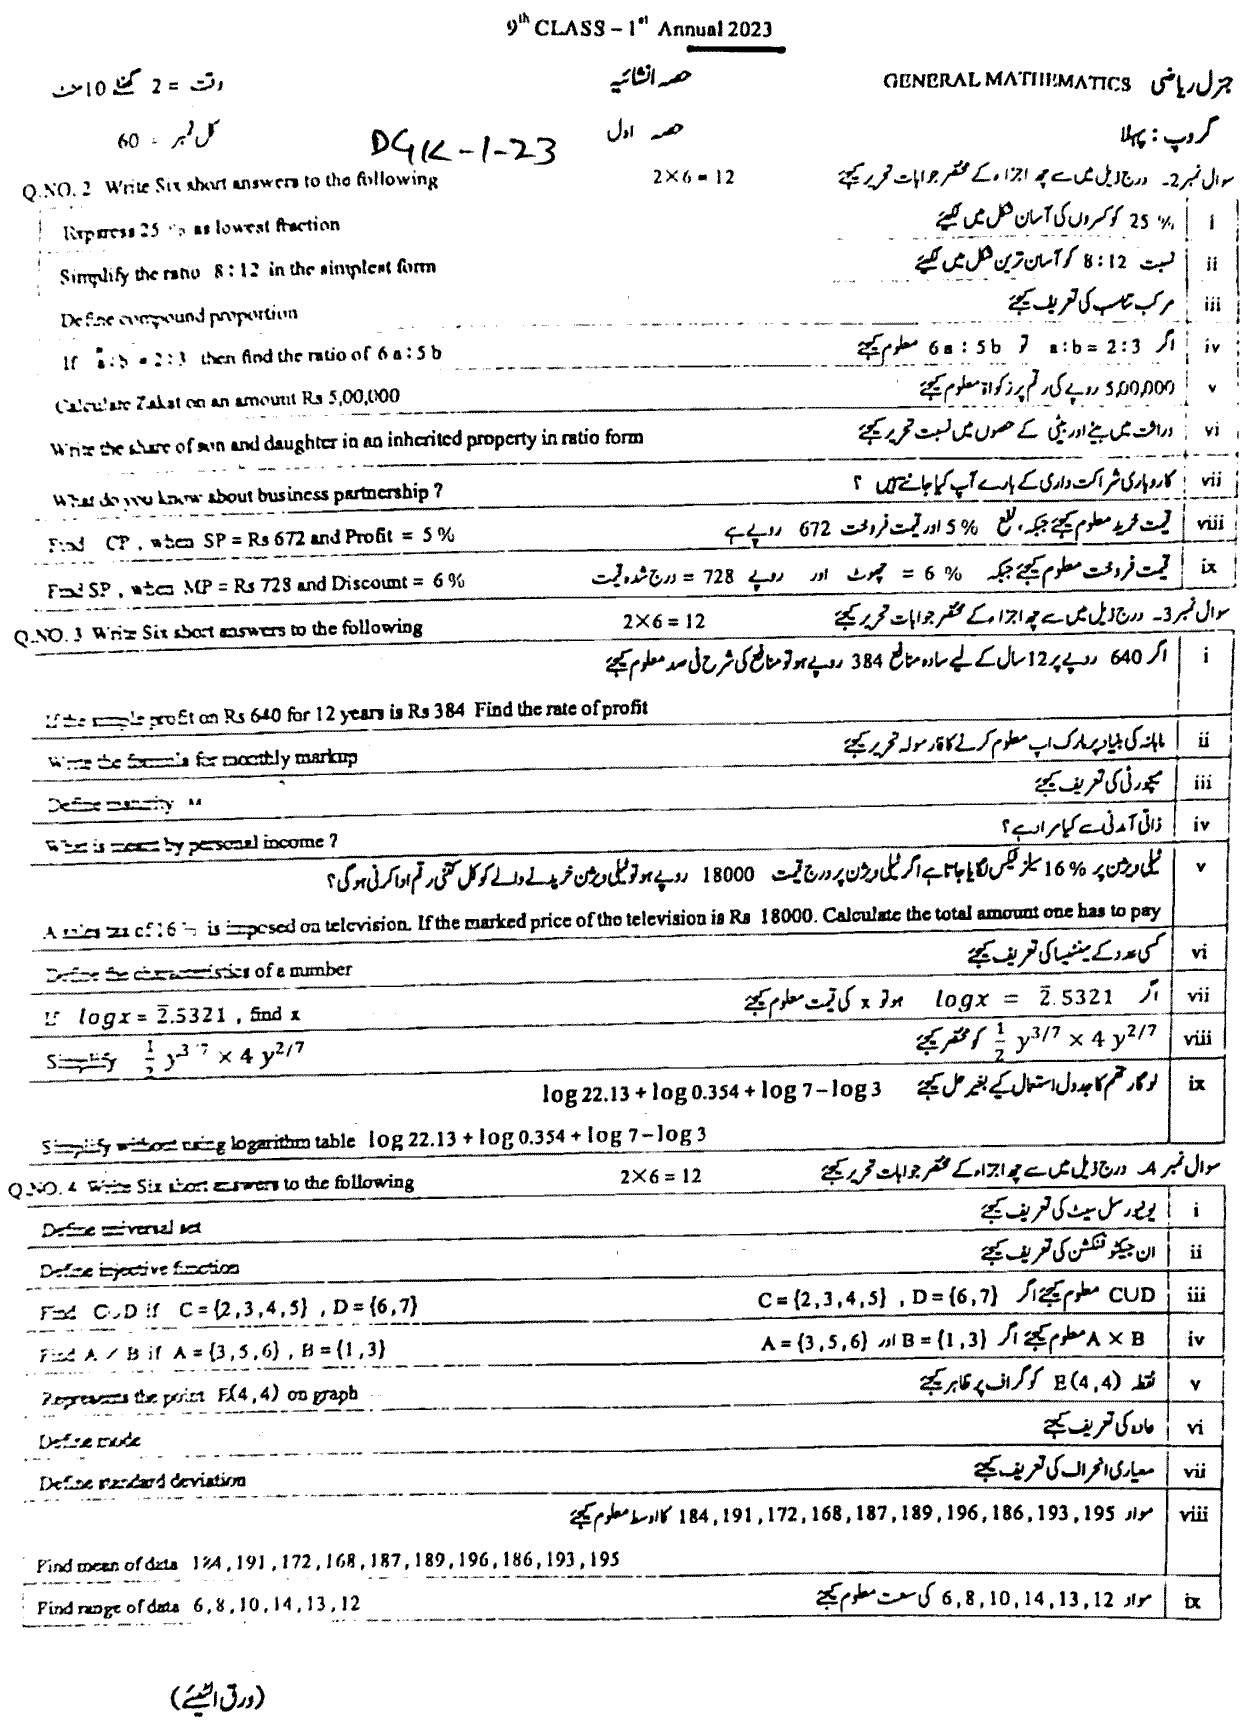 9th CLASS – 1st Annual 2023
جنرل ریاضی GENERAL MATHEMATICS حصہ انشائیہ وقت = 2 گھنٹے 10 منٹ
گروپ : پہلا حصہ اول کل نمبر = 60
DGK-1-23
سوال نمبر 2۔ درج ذیل میں سے چھ اجزاء کے مختصر جوابات تحریر کیجئے 2×6 = 12 Q.NO. 2 Write Six short answers to the following
i 25 % کو کسروں کی آسان شکل میں لکھیئے
Express 25 % as lowest fraction
ii نسبت 8:12 کو آسان ترین شکل میں لکھیئے
Simplify the ratio 8 : 12 in the simplest form
iii مرکب تناسب کی تعریف کیجئے
Define compound proportion
iv اگر a:b = 2:3 تو 6a : 5b معلوم کیجئے
If a : b = 2 : 3 then find the ratio of 6 a : 5 b
v 5,00,000 روپے کی رقم پر زکواۃ معلوم کیجئے
Calculate Zakat on an amount Rs 5,00,000
vi وراثت میں بیٹے اور بیٹی کے حصوں میں نسبت تحریر کیجئے
Write the share of son and daughter in an inherited property in ratio form
vii کاروباری شراکت داری کے بارے آپ کیا جانتے ہیں ؟
What do you know about business partnership ?
viii قیمت خرید معلوم کیجئے جبکہ، نفع 5% اور قیمت فروخت 672 روپے ہے
Find CP , when SP = Rs 672 and Profit = 5 %
ix قیمت فروخت معلوم کیجئے جبکہ 6 % = چھوٹ اور روپے 728 = درج شدہ قیمت
Find SP , when MP = Rs 728 and Discount = 6 %
سوال نمبر 3۔ درج ذیل میں سے چھ اجزاء کے مختصر جوابات تحریر کیجئے 2×6 = 12 Q.NO. 3 Write Six short answers to the following
i اگر 640 روپے پر 12 سال کے لیے سادہ منافع 384 روپے ہو تو منافع کی شرح فی صد معلوم کیجئے
If the simple profit on Rs 640 for 12 years is Rs 384 Find the rate of profit
ii ماہانہ کی بنیاد پر مارک اپ معلوم کرنے کا فارمولہ تحریر کیجئے
Write the formula for monthly markup
iii میچورٹی کی تعریف کیجئے
Define maturity
iv ذاتی آمدنی سے کیا مراد ہے؟
What is meant by personal income ?
v ٹیلی ویژن پر 16 % سیلز ٹیکس لگایا جاتا ہے اگر ٹیلی ویژن پر درج قیمت 18000 روپے ہو تو ٹیلی ویژن خریدنے والے کو کل کتنی رقم ادا کرنی ہوگی؟
A sales tax of 16 % is imposed on television. If the marked price of the television is Rs 18000. Calculate the total amount one has to pay
vi کسی عدد کے مینٹیسا کی تعریف کیجئے
Define the characteristics of a number
vii اگر logx = 2̅.5321 ہو تو x کی قیمت معلوم کیجئے
If logx = 2̅.5321 , find x
viii 1/2 y^3/7 × 4 y^2/7 کو مختصر کیجئے
Simplify 1/2 y^3/7 × 4 y^2/7
ix لوگارتھم کا جدول استعمال کیے بغیر حل کیجئے log 22.13 + log 0.354 + log 7 – log 3
Simplify without using logarithm table log 22.13 + log 0.354 + log 7 – log 3
سوال نمبر 4۔ درج ذیل میں سے چھ اجزاء کے مختصر جوابات تحریر کیجئے 2×6 = 12 Q.NO. 4 Write Six short answers to the following
i یونیورسل سیٹ کی تعریف کیجئے
Define universal set
ii ان جیکٹو فنکشن کی تعریف کیجئے
Define injective function
iii CUD معلوم کیجئے اگر C = {2,3,4,5} , D = {6,7}
Find CUD if C = {2,3,4,5} , D = {6,7}
iv A × B معلوم کیجئے اگر B = {1,3} اور A = {3,5,6}
Find A × B if A = {3,5,6} , B = {1,3}
v نقطہ E(4,4) کو گراف پر ظاہر کیجئے
Represents the point E(4,4) on graph
vi عادہ کی تعریف کیجئے
Define mode
vii معیاری انحراف کی تعریف کیجئے
Define standard deviation
viii مواد 184,191,172,168,187,189,196,186,193,195 کا اوسط معلوم کیجئے
Find mean of data 184,191,172,168,187,189,196,186,193,195
ix مواد 6,8,10,14,13,12 کی سعت معلوم کیجئے
Find range of data 6,8,10,14,13,12
(ورق الٹیئے)